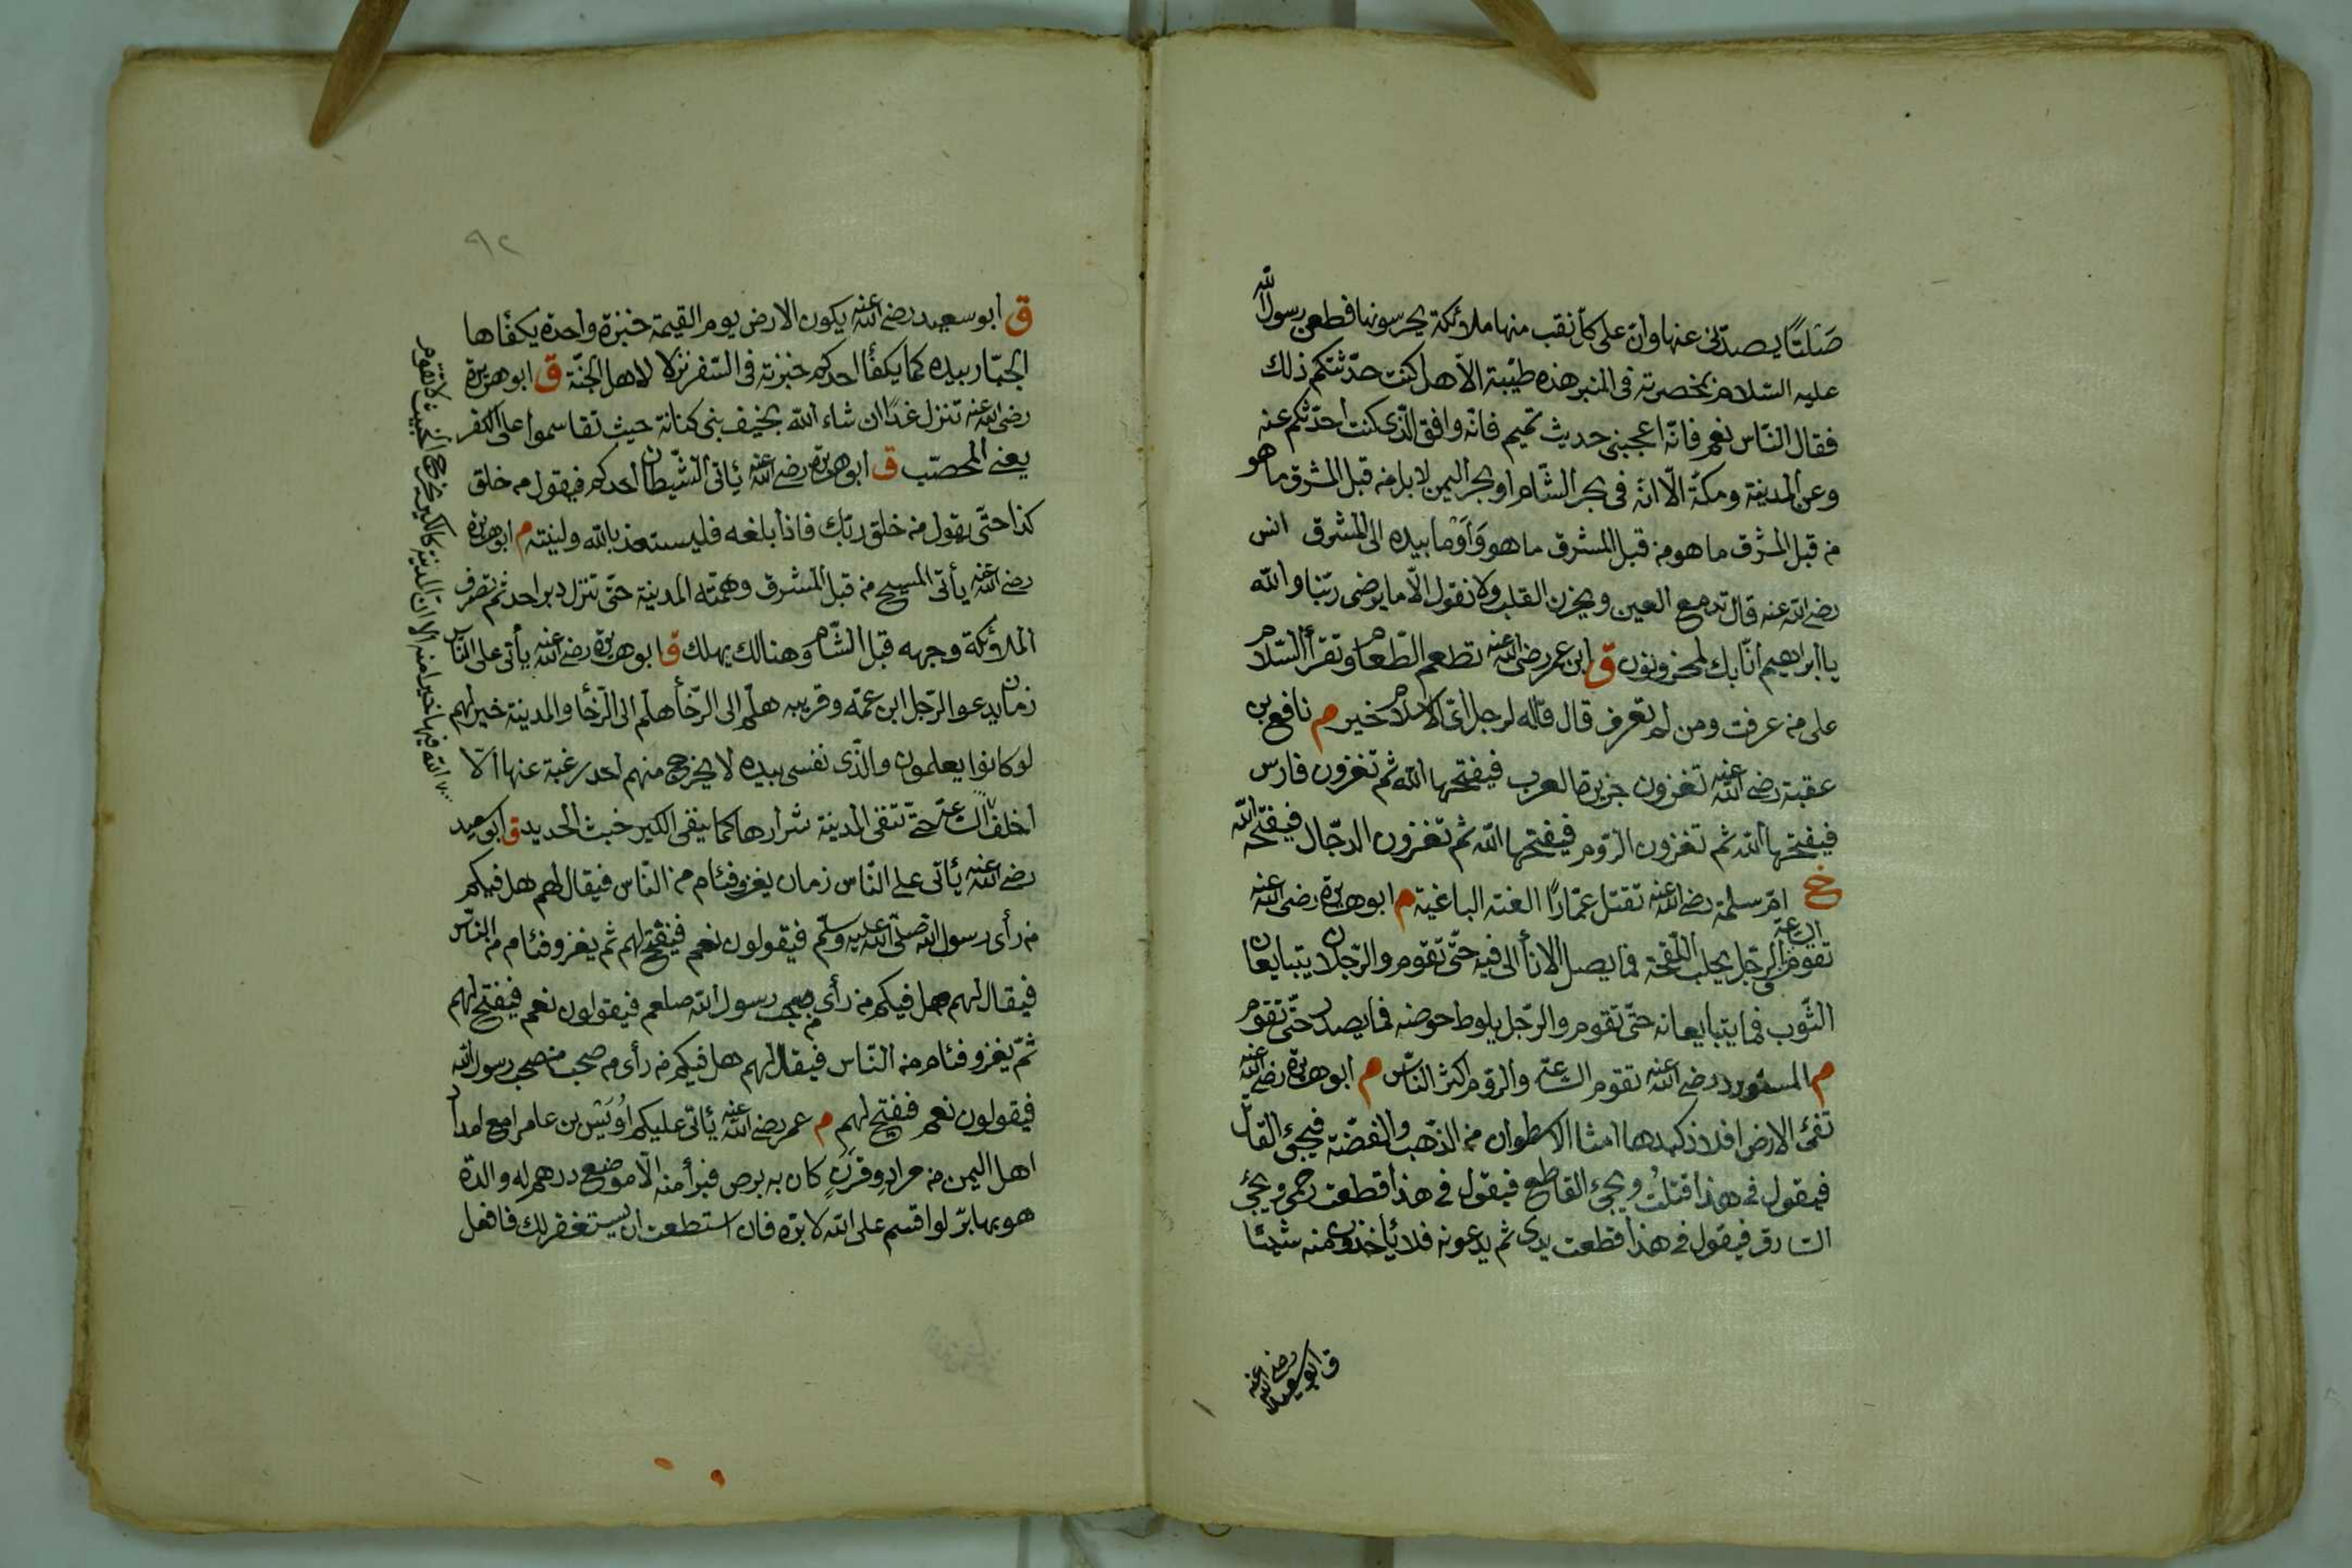 صَلتًا يصدّنى عنها وانّ على كلّ نقب منها ملائكة يحرسونها فطعن رسول الله
عليه السّلام بمخصرته فى المنبر هذه طيّبة الاّ هل كنت حدّثتكم ذلك
فقال النّاس نعم فانّه اعجبنى حديث تميم فانّه وافق الّذى كنت احدّثكم عنه
وعن المدينة ومكّة الّا انّه فى بحر الشّام او بحر اليمن لا بل من قبل المشرق ما هو
من قبل المشرق ما هو من قبل المشرق ما هو وَاَوْما بيده الى المشرق انس
رضى الله عنه قال تدمع العين ويحزن القلب ولا نقول الّا ما يرضى ربّنا والله
يا ابراهيم انّا بك لمحزونون ق ابن عمر رضى الله عنه تطعم الطّعام وتقرأ السّلام
على من عرفت ومن لم تعرف قال قاله لرجل اىّ الاسلام خير م نافع بن
عقبة رضى الله عنه تغزون جزيرة العرب فيفتحها الله ثم تغزون فارس
فيفتحها الله ثم تغزون الرّوم فيفتحها الله ثم تغزون الدجّال فيفتحه الله
خ امّ سلمة رضى الله عنه تقتل عمّارًا الفئة الباغية م ابو هريرة رضى الله عنه
تقوم السّاعة والرّجل يحلب اللّقحة فما يصل الاناأ الى فيه حتّى تقوم والرّجلان يتبايعان
الثّوب فما يتبايعانه حتّى تقوم والرّجل يلوط حوضه فما يصدر حتّى تقوم
م المستورد رضى الله عنه تقوم السّاعة والرّوم اكثر النّاس م ابو هريرة رضى الله عنه
تقئ الارض افلاذ كبدها امثال الاسطوان من الذّهب والفضّة فيجئ القاتل
فيقول فى هذا قتلتُ ويجئ القاطع فيقول فى هذا قطعت رحمى ويجئ
السّارق فيقول فى هذا قطعت يدى ثم يدعونه فلا يأخذون منه شيئا
ق ابو سعيد رضى الله عنه
٩٢
ق ابو سعيد رضى الله عنه يكون الارض يوم القيمة خبزة واحدة يكفأها
الجبّار بيده كما يكفأ احدكم خبزته فى السّفر نزلا لاهل الجنّة ق ابو هريرة
رضى الله عنه تنزل غدًا ان شاء الله بخيف بنى كنانة حيث تقاسموا على الكفر
يعنى المحصّب ق ابو هريرة رضى الله عنه يأتى الشّيطان احدكم فيقول من خلق
كذا حتّى يقول من خلق ربّك فاذا بلغه فليستعذ بالله ولينته م ابو هريرة
رضى الله عنه يأتى المسيح من قبل المشرق وهمّته المدينة حتّى تنزل دبر احد ثم تصرف
الملائكة وجهه قبل الشّام وهنالك يهلك ق ابو هريرة رضى الله عنه يأتى على النّاس
زمان يدعو الرّجل ابن عمّه وقريبه هلمّ الى الرّخأ هلم الى الرّخأ والمدينة خير لهم
لو كانوا يعلمون والّذى نفسى بيده لا يخرج منهم احد رغبة عنها الّا
اخلف الله فيها خيرا منه الا ان المدينة كالكير يخرج الخبيث لا تقوم
السّاعة حتّى تنفى المدينة شرارها كما ينفى الكير خبث الحديد ق ابو سعيد
رضى الله عنه يأتى على النّاس زمان يغزو فئام من النّاس فيقال لهم هل فيكم
من رأى رسول الله صلّى الله عليه وسلّم فيقولون نعم فيفتح لهم ثم يغزو فئام من النّاس
فيقال لهم هل فيكم من رأى من صحب رسول الله صلعم فيقولون نعم فيفتح لهم
ثمّ يغزو فئام من النّاس فيقال لهم هل فيكم من رأى من صحب من صحب رسول الله
فيقولون نعم فيفتح لهم م عمر رضى الله عنه يأتى عليكم اُوَيْس بن عامر مع امداد
اهل اليمن من مراد وقرن كان به برص فبرأ منه الّا موضع درهم له والدة
هو بها برّ لو اقسم على الله لابرّه فان استطعت ان يستغفر لك فافعل